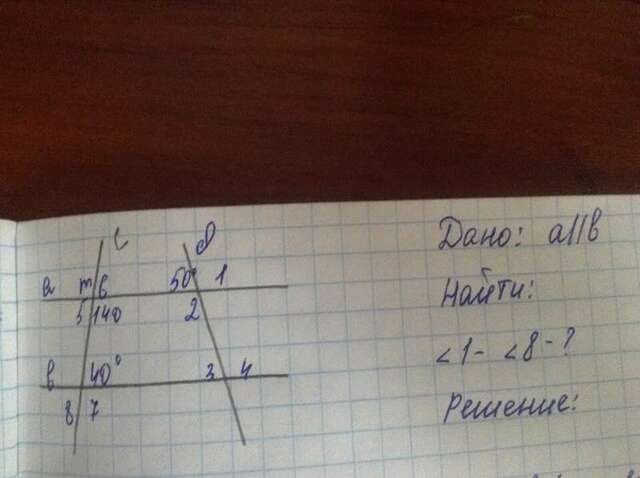 c d
a m 6 50° 1
5 140 2
в 40° 3 4
8 7
Дано: a||в
Найти:
<1- <8-?
Решение: